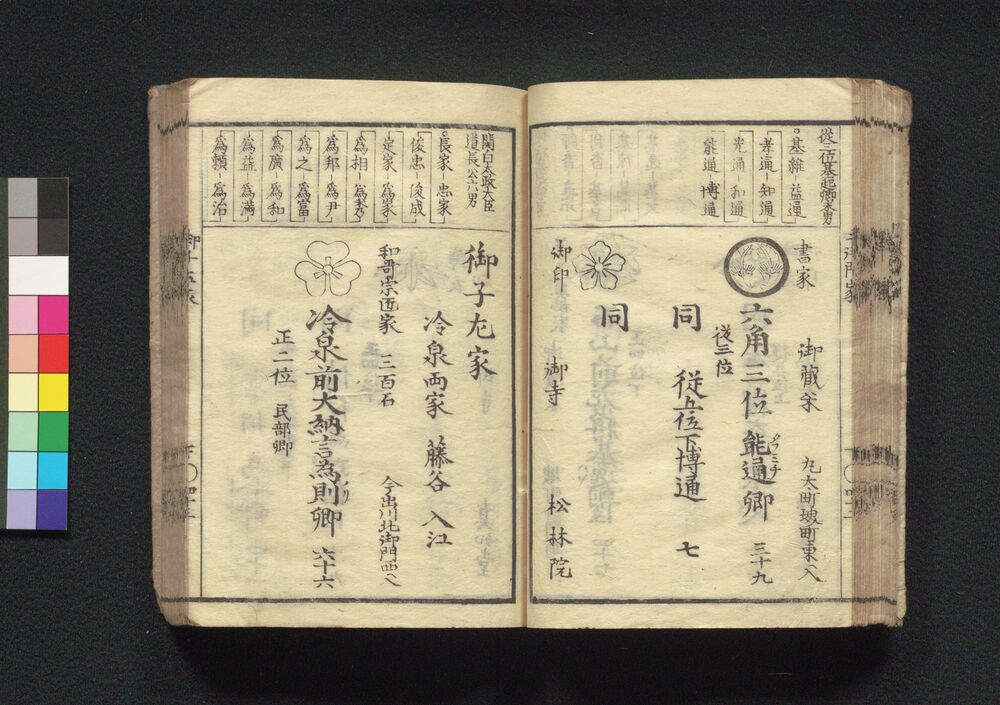 従二位基起卿末男
基維-益通
孝通-知通
光通-和通
能通-博通
書家
御蔵米
丸太町堺町東入
六角三位能通卿
三十九
従三位
同
従五位下博通
七
同
御印
御寺
松林院
関白太政大臣
道長公六男
長家-忠家
俊忠-俊成
定家-為家
為相-為秀
為邦-為尹
為之-為富
為廣-為和
為益-為満
為頼-為治
御子左家
冷泉両家
藤谷
入江
和哥宗匠家
三百石
今出川北御門西入
冷泉前大納言為則卿
六十六
正二位
民部卿